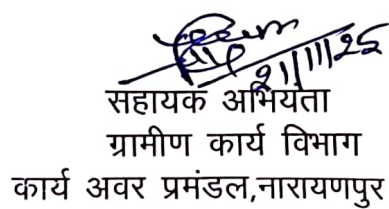 21/11/25
सहायक अभियंता
ग्रामीण कार्य विभाग
कार्य अवर प्रमंडल,नारायणपुर